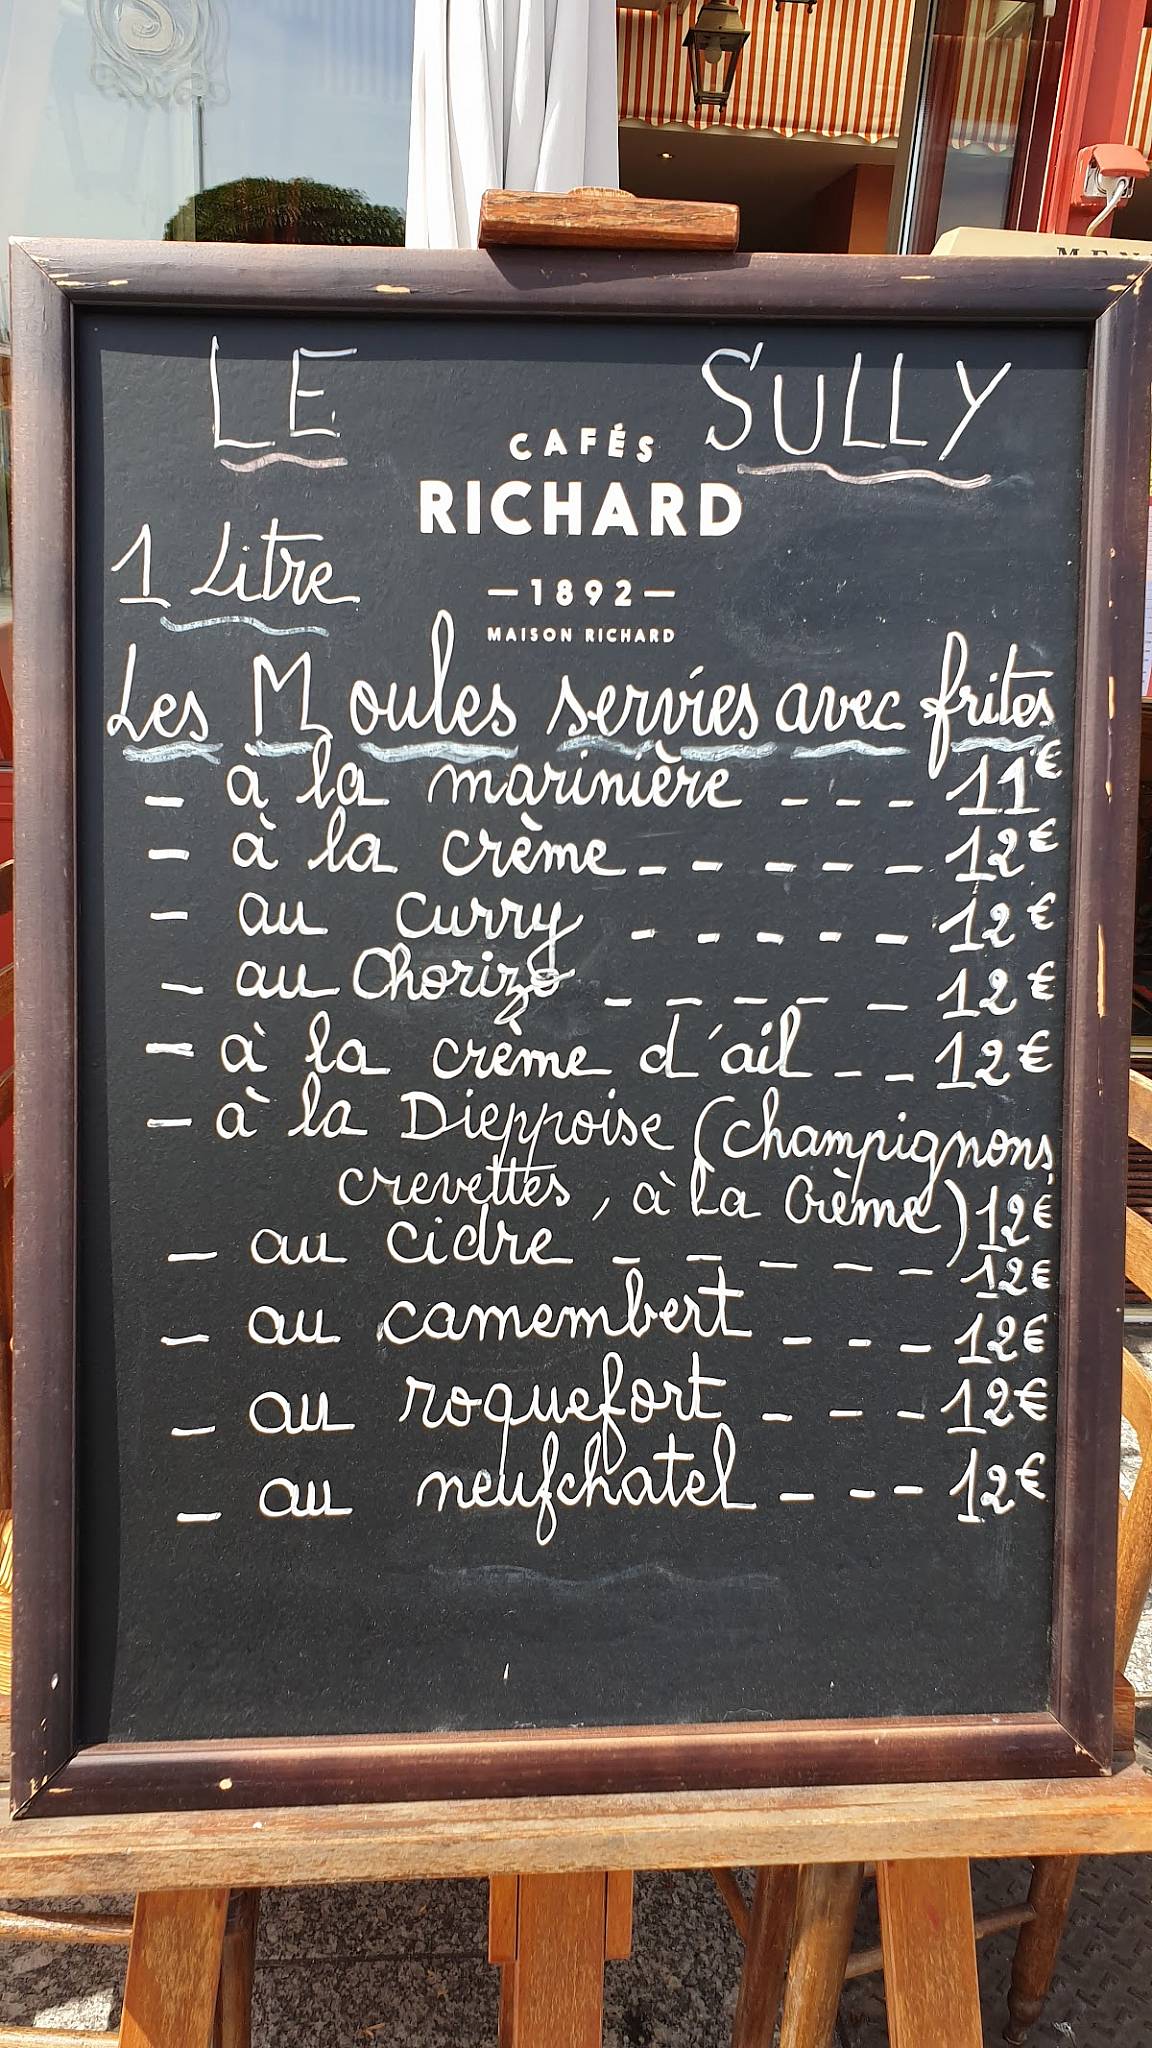 LE SULLY
CAFÉS
RICHARD
1 Litre
—1892—
MAISON RICHARD
Les Moules servies avec frites
_ à la marinière _ _ _ 11€
_ à la crème _ _ _ _ _ 12€
_ au curry _ _ _ _ _ 12€
_ au Chorizo _ _ _ _ _ 12€
_ à la crème d'ail _ _ 12€
_ à la Dieppoise (champignons
crevettes, à la Crème) 12€
_ au cidre _ _ _ _ _ 12€
_ au camembert _ _ _ 12€
_ au roquefort _ _ _ 12€
_ au neufchatel _ _ _ 12€